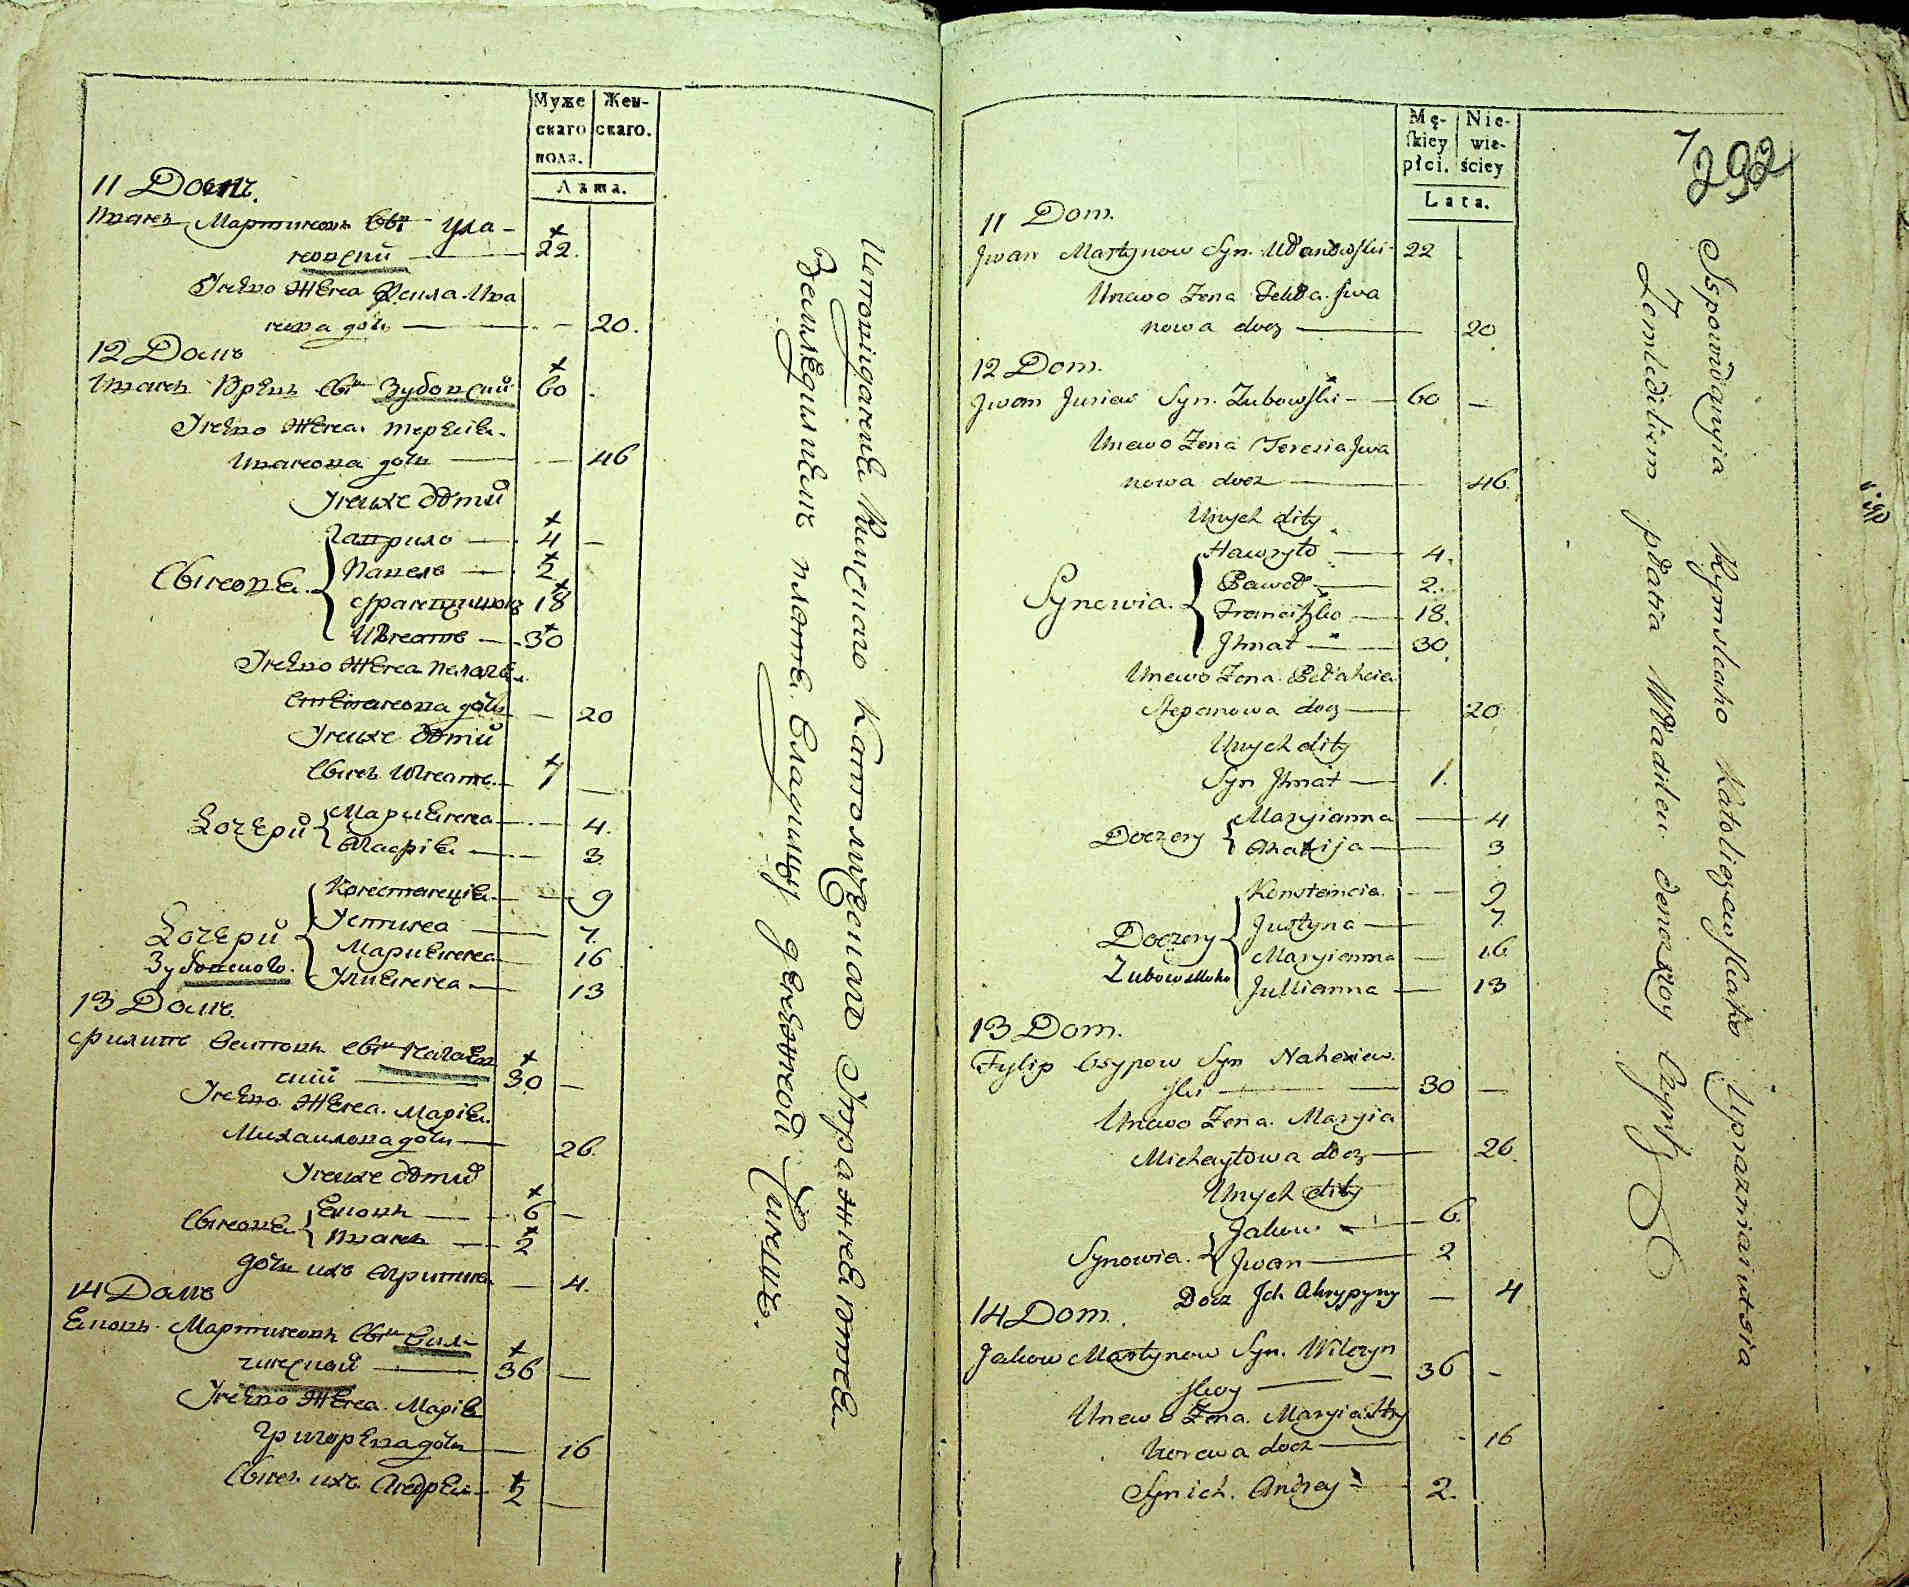 Муже
скаго
пола.
Жен-
скаго.
Лѣта.
11 Домъ.
Иванъ Мартиновъ Сынъ Ула-
новский 22.
У него Жена Фекла Ива
нова дочь 20.
12 Домъ
Иванъ Юрьевъ Сынъ Зубовский 60
У него Жена Тересія
Иванова дочь 46
У нихъ дѣти
Сынове
Гаврило 4
Павелъ 2
Францишокъ 18
Игнатъ 30
У него Жена Пелагія
Степанова дочь 20
У нихъ дѣти
Сынъ Игнатъ 1
Дочери
Маріянна 4.
Анастасія 3
Дочери
Зубовского.
Констанція 9
Устина 7.
Маріянна 16
Улиянна 13
13 Домъ.
Филипъ Осиповъ Сынъ Нагаев
ский 30
У него Жена Марія
Михаилова дочь 26.
У нихъ дѣти
Сынове
Яковъ 6
Иванъ 2
дочь ихъ Агрипина 4.
14 Домъ
Яковъ Мартиновъ Сынъ Вил-
чинский 36
У него Жена Марія
Григорева дочь 16
Сынъ ихъ Андрей 2
Землѣдѣлиемъ платя Владѣлцу денежной Чиншъ.
Mę-
skiey
płci.
Nie-
wie-
ściey
Lata.
7
292
11 Dom.
Jwan Martynow Syn. Ułanowski 22
Unewo Żena Tekła Jwa
nowa docz 20
12 Dom.
Jwan Juriew Syn. Zubowski 60
Unewo Żena Teresia Jwa
nowa docz 46.
Unych dity
Synowia.
Hawryło 4.
Paweł 2.
Franciszko 18.
Jhnat 30
Unewo Żena Pełaheia
Stepanowa docz 20
Unych dity
Syn Jhnat 1.
Doczery
Maryianna 4
Anastasija 3
Doczery
Zubowskoho
Konstancia 9
Justyna 7.
Maryianna 16
Jullianna 13
13 Dom.
Fylip Osypow Syn Nahaiew
ski 30
Unewo Żena. Maryia
Michayłowa docz 26.
Unych dity
Synowia.
Jakow 6.
Jwan 2
Docz Jch Ahrypyny 4
14 Dom.
Jakow Martynow Syn. Wilczyn
skoy 36
Unewo Żena. Maryia Hry
horewa docz 16
Syn ich. Andrey 2.
Jspowidanyia Rymskaho Katoliczewskaho Uprazniaiutsia
Zemlediliem płatia Władilcu denieżnoy Czynsz